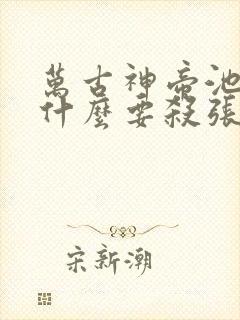 萬古神帝池
什麼要殺張
宋新潮